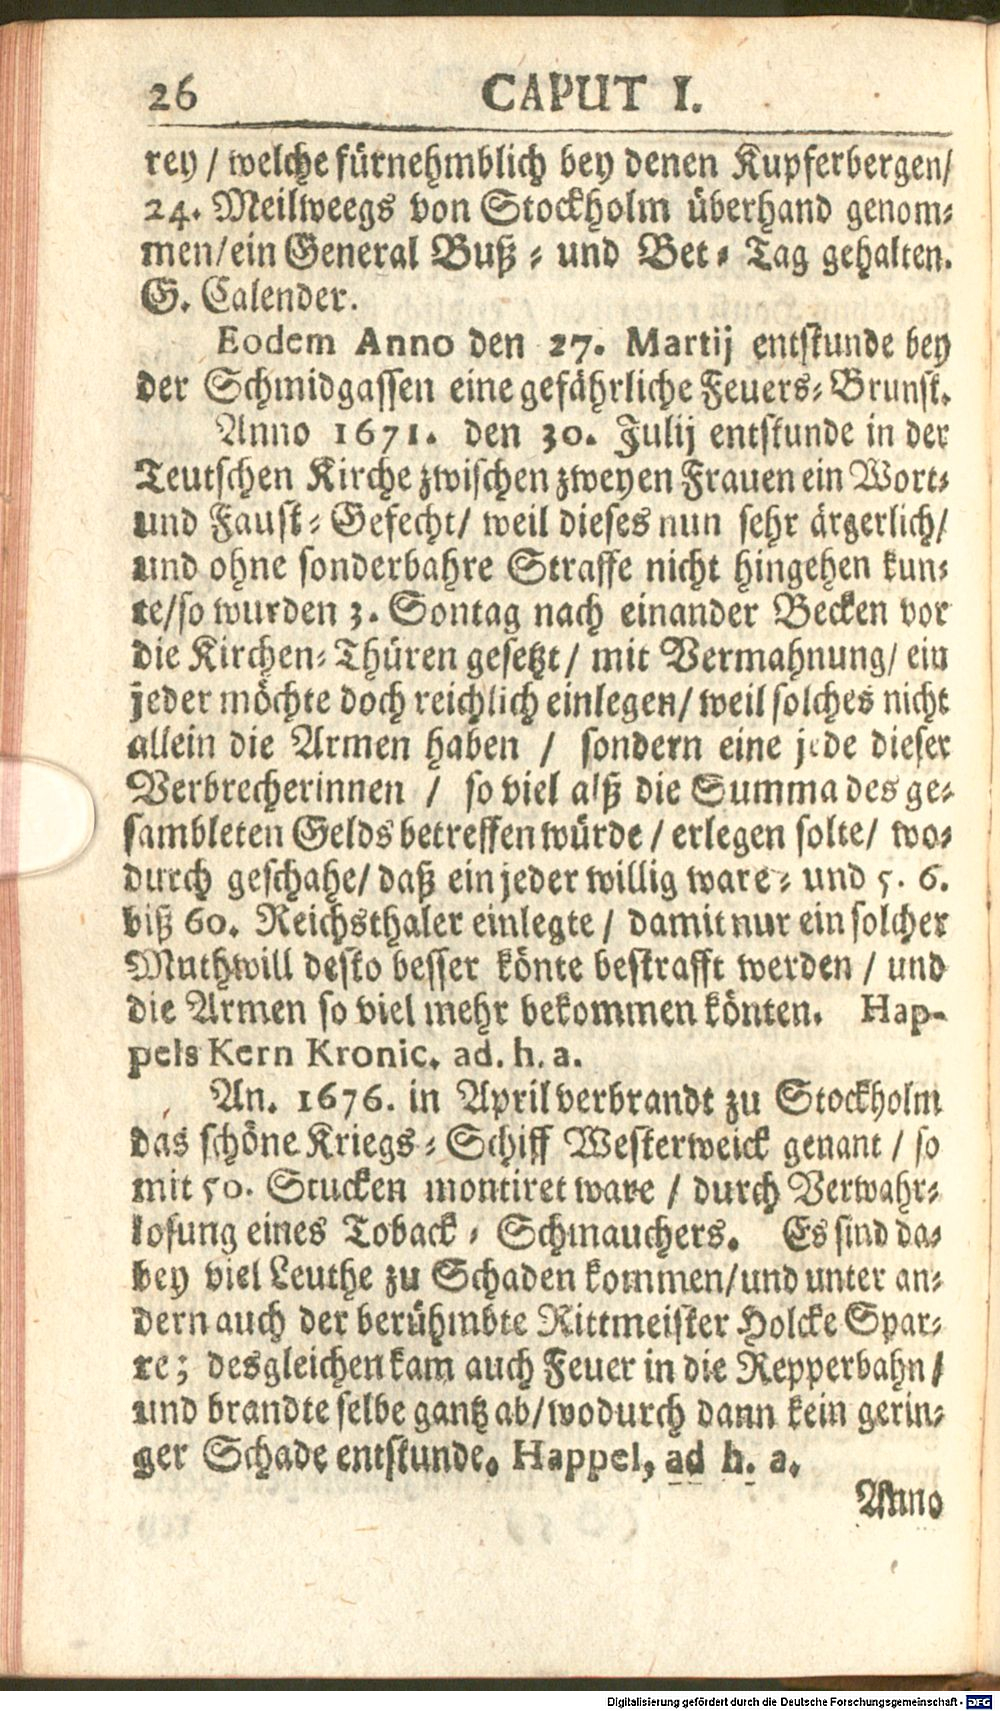 26 CAPUT I.
rey / welche fürnehmblich bey denen Kupferbergen/
24. Meilweegs von Stockholm überhand genom-
men/ein General Buß - und Bet - Tag gehalten.
G. Calender.
Eodem Anno den 27. Martij entstunde bey
der Schmidgassen eine gefährliche Feuers-Brunst.
Anno 1671. den 30. Julij entstunde in der
Teutschen Kirche zwischen zweyen Frauen ein Wort-
und Faust-Gefecht/ weil dieses nun sehr ärgerlich/
und ohne sonderbahre Straffe nicht hingehen kun-
te/so wurden 3. Sontag nach einander Becken vor
die Kirchen-Thüren gesetzt/ mit Vermahnung/ ein
jeder möchte doch reichlich einlegen/ weil solches nicht
allein die Armen haben / sondern eine jede dieser
Verbrecherinnen / so viel alß die Summa des ge-
sambleten Gelds betreffen würde / erlegen solte/ wo-
durch geschahe/ daß ein jeder willig ware- und 5. 6.
biß 60. Reichsthaler einlegte / damit nur ein solcher
Muthwill desto besser könte bestrafft werden / und
die Armen so viel mehr bekommen könten. Hap-
pels Kern Kronic. ad. h. a.
An. 1676. in April verbrandt zu Stockholm
das schöne Kriegs-Schiff Westerweick genant / so
mit 50. Stucken montiret ware / durch Verwahr-
losung eines Toback - Schmauchers. Es sind da-
bey viel Leuthe zu Schaden kommen/und unter an-
dern auch der berühmbte Rittmeister Holcke Spar-
re; desgleichen kam auch Feuer in die Repperbahn/
und brandte selbe gantz ab/wodurch dann kein gerin-
ger Schade entstunde. Happel, ad h. a.
Anno
Digitalisierung gefördert durch die Deutsche Forschungsgemeinschaft - DFG